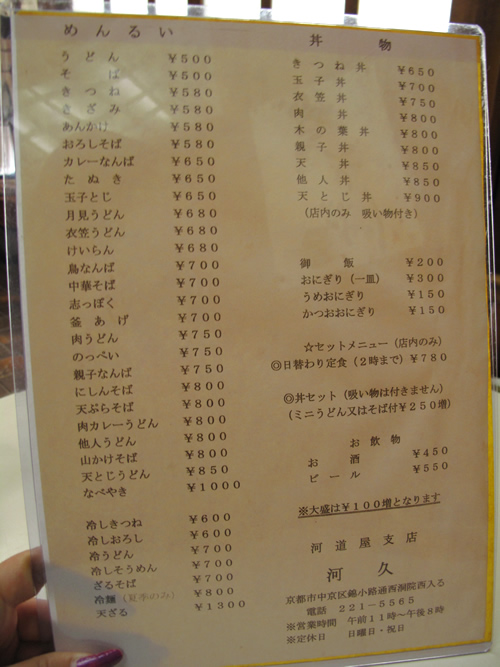 めんるい
うどん ￥５００
そば ￥５００
きつね ￥５８０
きざみ ￥５８０
あんかけ ￥５８０
おろしそば ￥５８０
カレーなんば ￥６５０
たぬき ￥６５０
玉子とじ ￥６５０
月見うどん ￥６８０
衣笠うどん ￥６８０
けいらん ￥６８０
鳥なんば ￥７００
中華そば ￥７００
志っぽく ￥７００
釜あげ ￥７００
肉うどん ￥７５０
のっぺい ￥７５０
親子なんば ￥７５０
にしんそば ￥８００
天ぷらそば ￥８００
肉カレーうどん ￥８００
他人うどん ￥８００
山かけそば ￥８００
天とじうどん ￥８５０
なべやき ￥１０００
冷しきつね ￥６００
冷しおろし ￥６００
冷うどん ￥７００
冷しそうめん ￥７００
ざるそば ￥７００
冷麺（夏季のみ） ￥８００
天ざる ￥１３００
丼物
きつね丼 ￥６５０
玉子丼 ￥７００
衣笠丼 ￥７５０
肉丼 ￥８００
木の葉丼 ￥８００
親子丼 ￥８００
天丼 ￥８５０
他人丼 ￥８５０
天とじ丼 ￥９００
（店内のみ 吸い物付き）
御飯 ￥２００
おにぎり（一皿） ￥３００
うめおにぎり ￥１５０
かつおおにぎり ￥１５０
☆セットメニュー（店内のみ）
◎日替わり定食（２時まで）￥７８０
◎丼セット（吸い物は付きません）
（ミニうどん又はそば付￥２５０増）
お飲物
お酒 ￥４５０
ビール ￥５５０
※大盛は￥１００増となります
河道屋支店
河久
京都市中京区錦小路通西洞院西入る
電話 ２２１－５５６５
※営業時間 午前１１時～午後８時
※定休日 日曜日・祝日